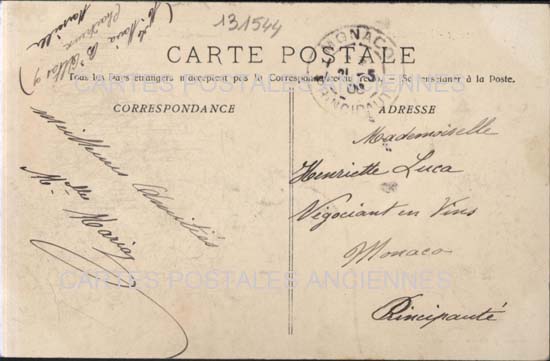 131544
Mlle Maria
Marseille
CARTE POSTALE
Tous les Pays étrangers n'acceptent pas la Correspondance au recto. - Se renseigner à la Poste.
MONACO
PRINCIPAUTÉ
CORRESPONDANCE
ADRESSE
CARTES POSTALES ANCIENNES
meilleures Amitiés
Mlle Maria
Mademoiselle
Henriette Luca
Négociant en Vins
Monaco
Principauté
CARTES POSTALES ANCIENNES